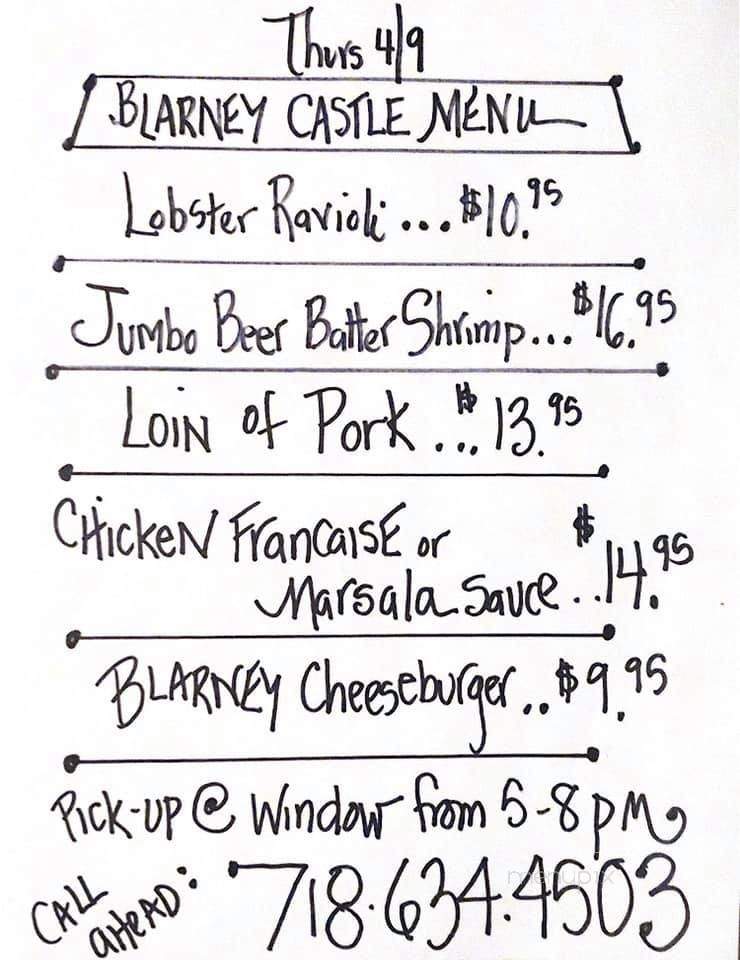 Thurs 4/9
BLARNEY CASTLE MENU
Lobster Ravioli ... $10.95
Jumbo Beer Batter Shrimp... $16.95
LOIN of Pork ... $13.95
CHICKEN FrancaisE or
Marsala Sauce .. $14.95
BLARNEY Cheeseburger .. $9.95
Pick-up @ Window from 5-8 pm
CALL AHEAD: 718.634.4503
menupix